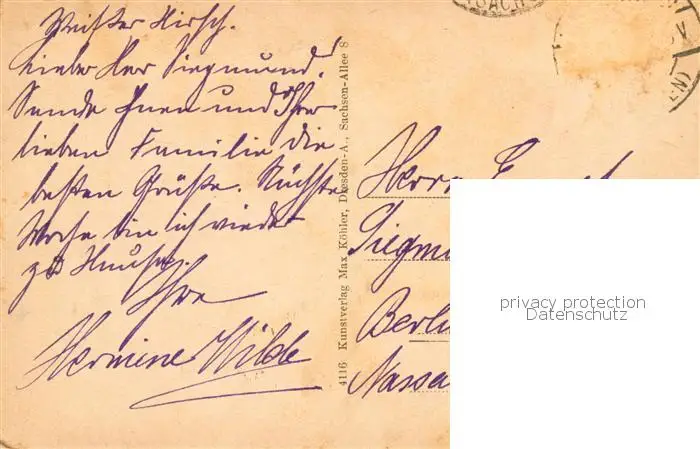 Weißer Hirsch.
Lieber Herr Siegmund!
Sende Ihnen und Ihrer
lieben Familie die
besten Grüße. Nächste
Woche bin ich wieder
zu Hause.
Ihre
Hermine Wilde
4116 Kunstverlag Max Köhler, Dresden-A., Sachsen-Allee 8
Herrn
Siegm
Berlin
Nassa
privacy protection
Datenschutz